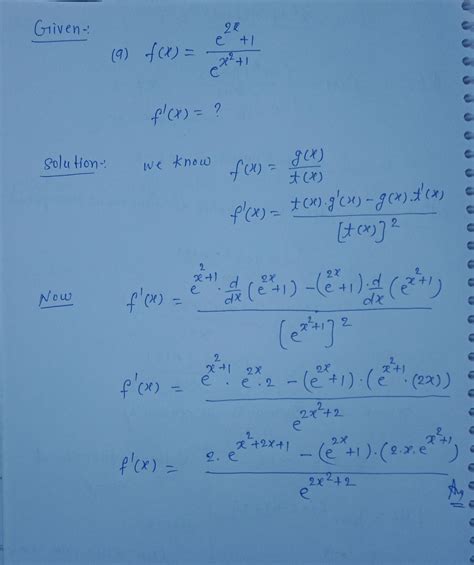 Given:-
(a) f(x) = (e^{2x}+1)/(e^{x^2+1})
f'(x) = ?
Solution:- we know f(x) = g(x)/t(x)
f'(x) = (t(x).g'(x) - g(x).t'(x))/[t(x)]^2
Now f'(x) = (e^{x^2+1}. d/dx (e^{2x}+1) - (e^{2x}+1). d/dx (e^{x^2+1}))/[e^{x^2+1}]^2
f'(x) = (e^{x^2+1}. e^{2x}.2 - (e^{2x}+1).(e^{x^2+1}.(2x)))/e^{2x^2+2}
f'(x) = (2. e^{x^2+2x+1} - (e^{2x}+1).(2.x.e^{x^2+1}))/e^{2x^2+2}
Ans